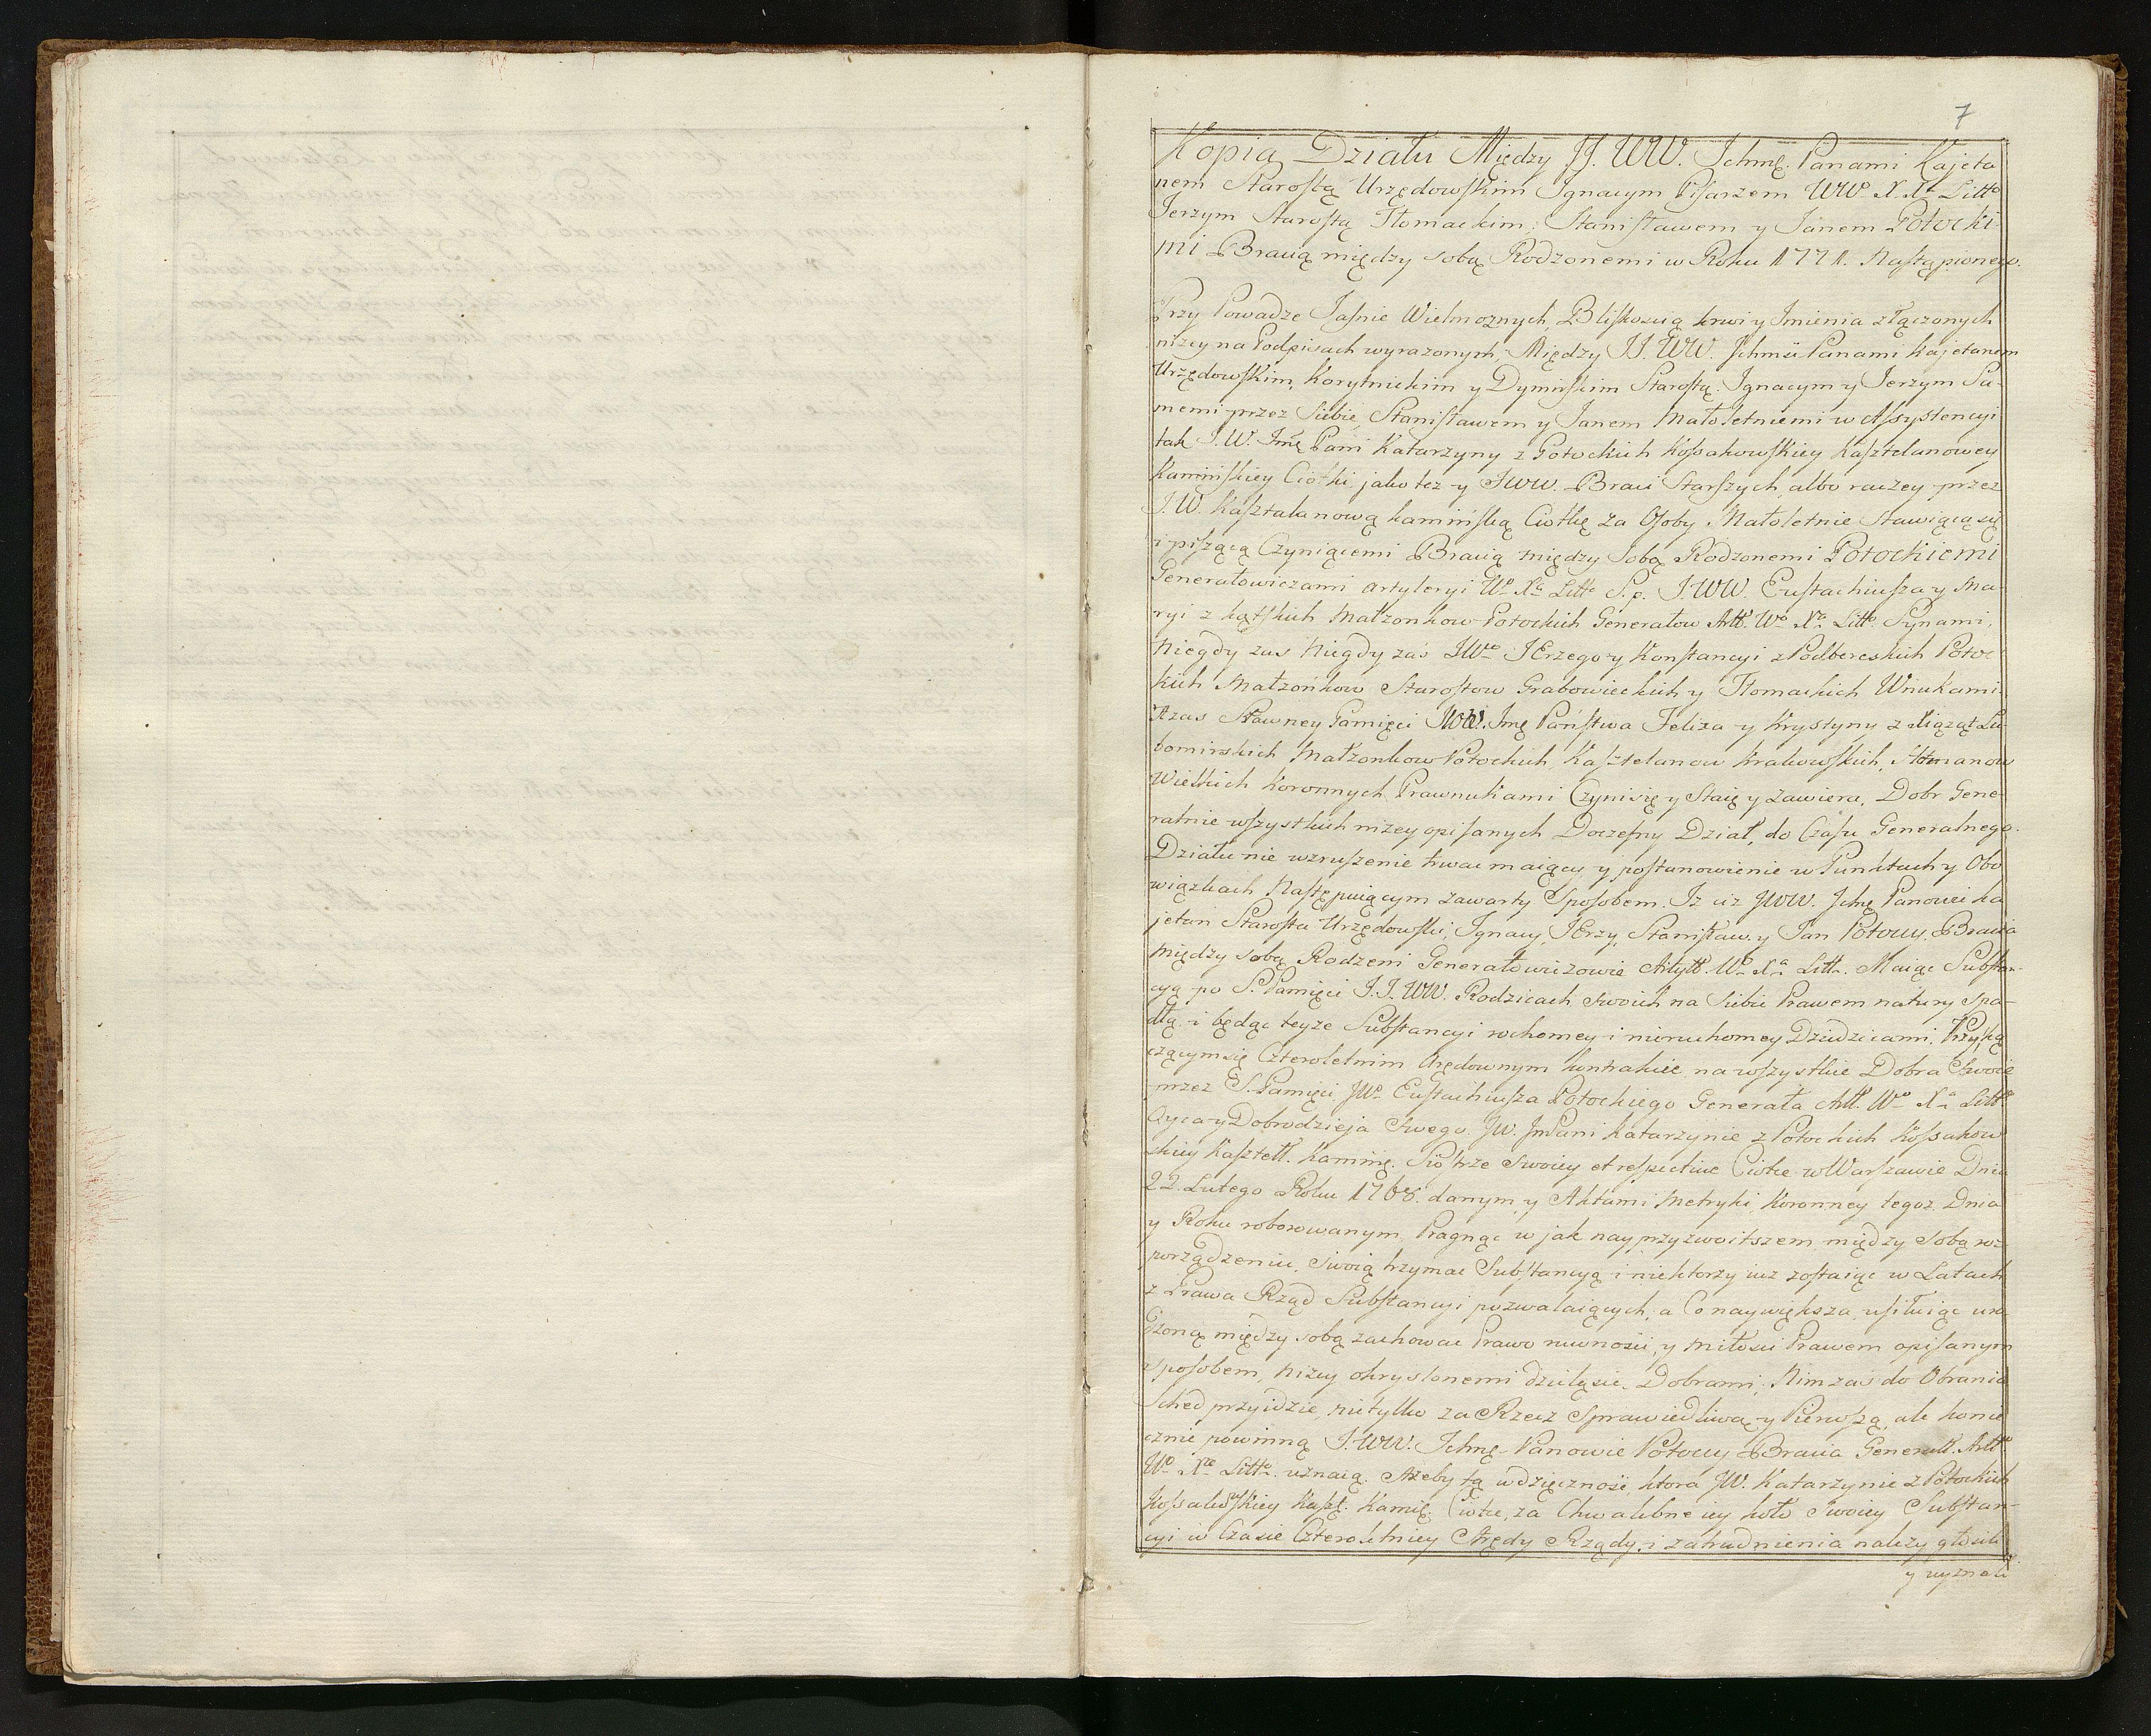 7
Kopia Działu Między JJ. WW. Jchmę. Panami Kajeta
nem Starostą Urzędowskim Ignacym Pisarzem WWo X. Xa Litto
Jerzym Starostą Tłomackim, Stanisławem y Janem Potocki
mi Bracią między sobą Rodzonemi w Roku 1771. Nastąpionego.
Przy Powadze Jasnie Wielmoznych, Bliskoscią krwi y Jmienia złączonych
nizey na Podpisach wyrazonych, Między JJ. WW. Jchmći Panami Kajetanem
Urzędowskim, Korytnickim y Dymirskim Starostą. Ignacym y Jerzym Sa-
memi przez Siebie, Stanisławem y Janem Małoletniemi w Assystencyi
tak J. W. Jmę Pani Katarzyny z Potockich Kossakowskiey Kasztelanowey
Kamińskiey Ciotki, jako tez y JWW. Braci Starszych, albo raczey przez
J. W. Kasztalanową kamińską Ciotkę za Osoby Małoletnie Stawiącą się
i piszącą Czyniącemi Bracią między Sobą Rodzonemi Potockiemi
Generałowiczami artyleryi Wo Xa Litto S. p. J. WW. Eustachiusza y Ma-
ryi z kątskich Małzonkow Potockich Generałow Artt. Wo Xa Litto. Synami,
Niegdy zas Niegdy zaś JWo JErzego y Konstancyi z Podbereskich Potoc
kich Małzonkow Starostow Grabowieckich y Tłomackich Wnukami.
Azas Sławney Pamięci JWW. Jmę Państwa Felixa y Krystyny z Xiąząt Lu-
bomirskich Małzonkow Potockich, Kasztelanow Krakowskich, Htmanow
Wielkich Koronnych, Prawnukami Czyni się y Staie y zawiera, Dobr Gene-
ralnie wszystkich nizey opisanych Doczesny Dział, do Czasu Generalnego
Działu nie wzruszenie trwac maiący, y postanowienie w Punktach y Obo
wiązkach Następuiącym zawarty Sposobem. Iz ciz JWW. Jchmę Panowie Ka
jetan Starosta Urzędowski, Ignacy, JErzy, Stanisław, y Jan Potoccy. Bracia
między sobą Rodzeni Generałowiczowie Artyll. Wo Xa Litto. Maiąc Substan-
cyą po S. Pamięci J.J. WW. Rodzicach swoich na Siebie Prawem natury Spa-
dłą i będąc teyze Substancyi rochomey i nieruchomey Dziedzicami. Przy koń
czącym się Czteroletnim Arędownym kontrakcie na wszystkie Dobra Swoie
przez S. Pamięci JWo Eustachiusza Potockiego Generała Artt. Wo Xa Litto
Oyca y Dobrodzieja Swego JW. JmPani Katarzynie z Potockich Kossakow
skiey Kasztell. Kaminę. Siostrze Swoiey et respective Ciotce w Warszawie Dnia
22. Lutego Roku 1768. danym, y Aktami Metryki, Koronney tegoz Dnia
y Roku roborowanym, Pragnąc w jak nayprzyzwoitszem między Sobą roz
porządzeniu, Swoią trzymac Substancyą i niektorzy iuz zostaiąc w Latach
z Prawa Rząd Substancyi pozwalaiących, a Co naywiększa, usiłuiąc uro
dzoną między sobą zachowac Prawo rowności, y miłości Prawem opisanym
sposobem, nizey okryslonemi dzieląsie Dobrami; Nim zas do Obrania
Sched przyidzie, nietylko za Rzecz Sprawiedliwą y Pierwszą, ale konie
cznie powinną J. WW. Jchmę Panowie Potoccy Bracia Generałł. Artto
Wo Xa Litto. uznaią. Azeby tą wdzięczność, ktora JW. Katarzynie z Potockich
Kossakowskiey Kaszt. Kamię. Ciotce, za Chwalebne iey koło Swoiey Substan-
cyi w Czasie Czteroletniey Arędy Rządy, i zatrudnienia nalezy głosili
y wyznali